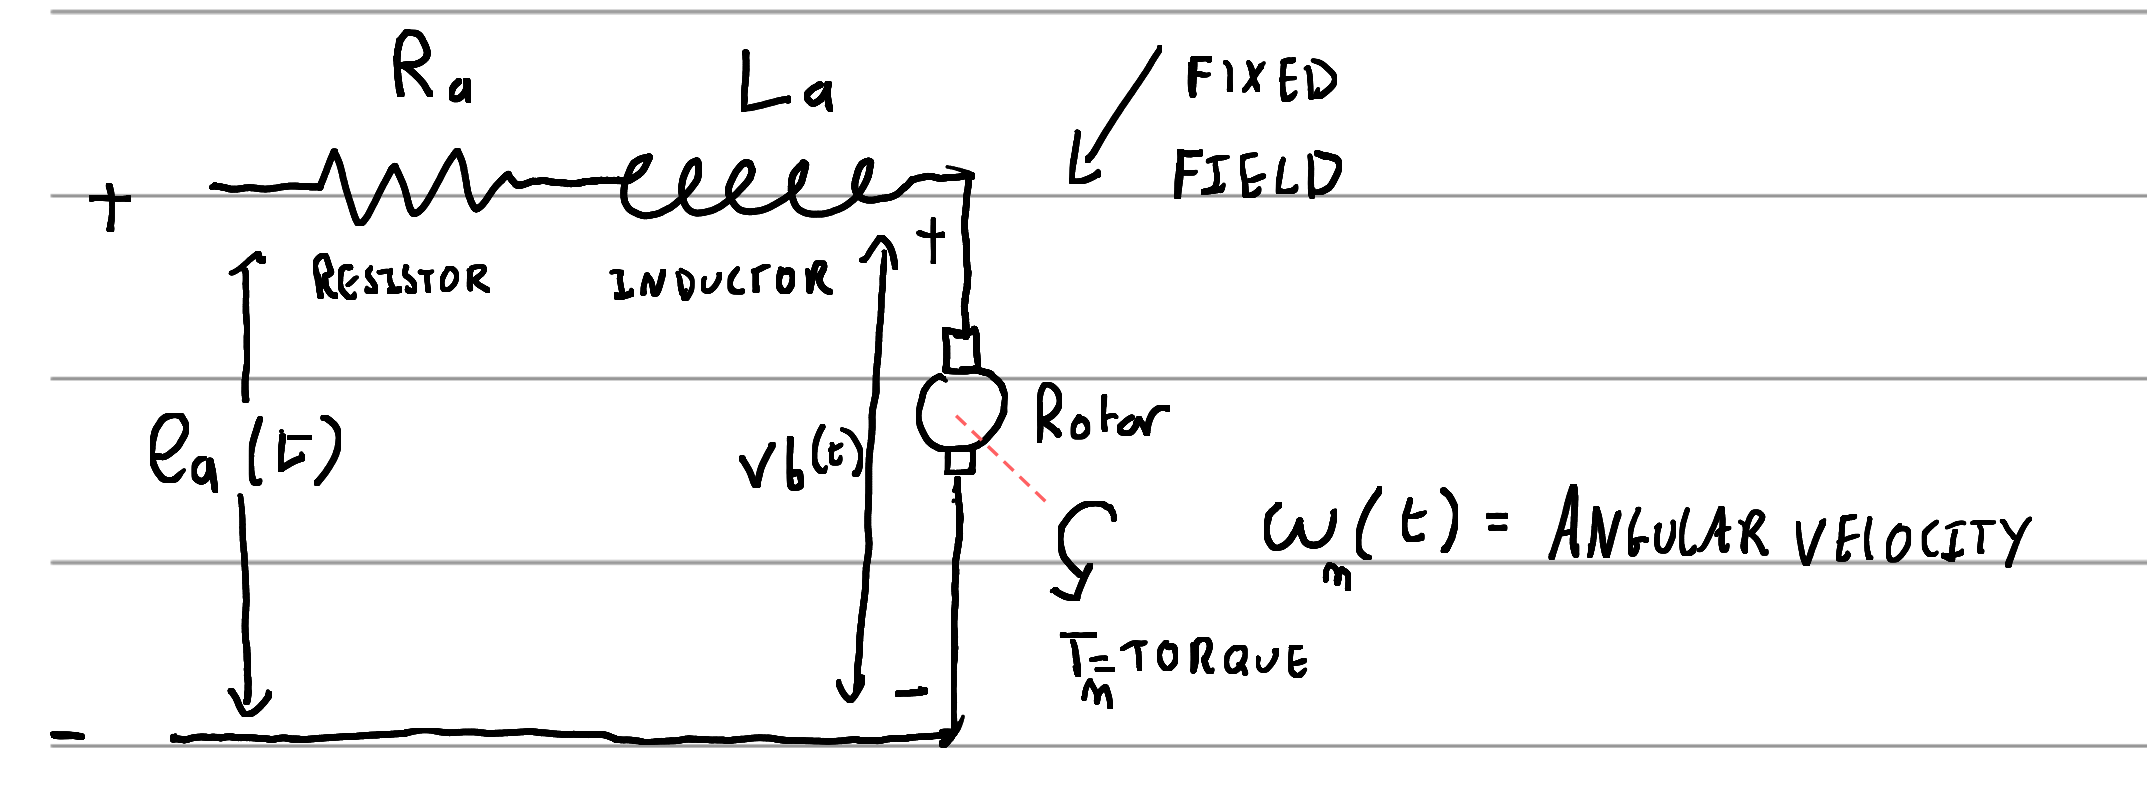 Ra
La
FIXED
FIELD
+
+
RESISTOR
INDUCTOR
ea(t)
vb(t)
Rotor
ωm(t) = ANGULAR VELOCITY
Tm = TORQUE
-
-